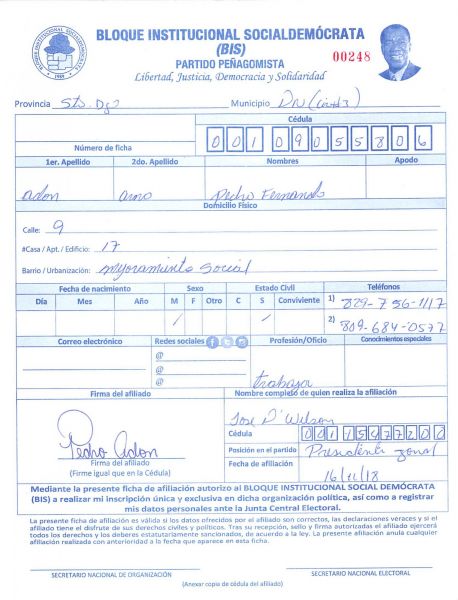 BLOQUE INSTITUCIONAL SOCIALDEMÓCRATA
(BIS)
PARTIDO PEÑAGOMISTA
Libertad, Justicia, Democracia y Solidaridad
00248
Provincia Sto. Dgo Municipio DN
Cédula
Número de ficha 001 0905580 6
1er. Apellido 2do. Apellido Nombres Apodo
adon Pedro Fernando
Domicilio Físico
Calle: 9
#Casa / Apt. / Edificio: 17
Barrio / Urbanización: Mejoramiento Social
Fecha de nacimiento Sexo Estado Civil Teléfonos
Día Mes Año M F Otro C S Conviviente 1) 829-756-1117
/ / 2) 809-684-0577
Correo electrónico Redes sociales Profesión/Oficio Conocimientos especiales
@
@
@ trabaja
Firma del afiliado Nombre completo de quien realiza la afiliación
Jose D' Wilson
Cédula
Pedro adon
Firma del afiliado
(Firme igual que en la Cédula)
Posición en el partido Presidente zonal
Fecha de afiliación 16/11/18
Mediante la presente ficha de afiliación autorizo al BLOQUE INSTITUCIONAL SOCIAL DEMÓCRATA
(BIS) a realizar mi inscripción única y exclusiva en dicha organización política, así como a registrar
mis datos personales ante la Junta Central Electoral.
La presente ficha de afiliación es válida si los datos ofrecidos por el afiliado son correctos, las declaraciones veraces y si el
afiliado tiene el disfrute de sus derechos civiles y políticos. Tras su recepción, sello y firma autorizadas el afiliado ejercerá
todos los derechos y los deberes estatutariamente sancionados, de acuerdo a la ley. La presente afiliación anula cualquier
afiliación realizada con anterioridad a la fecha que aparece en esta ficha.
SECRETARIO NACIONAL DE ORGANIZACIÓN SECRETARIO NACIONAL ELECTORAL
(Anexar copia de cédula del afiliado)